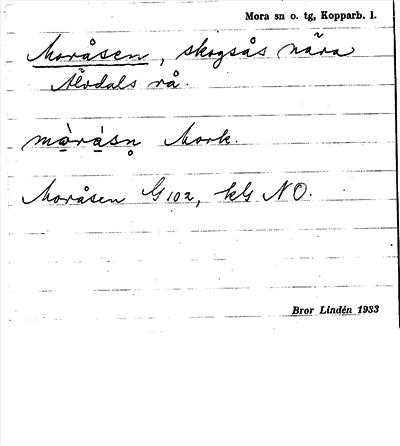 Mora sn o. tg, Kopparb. l.
Moråsen, skogsås nära
Älvdals rå.
mòrásn Mork.
Moråsen G 102, kG NO.
Bror Lindén 1933